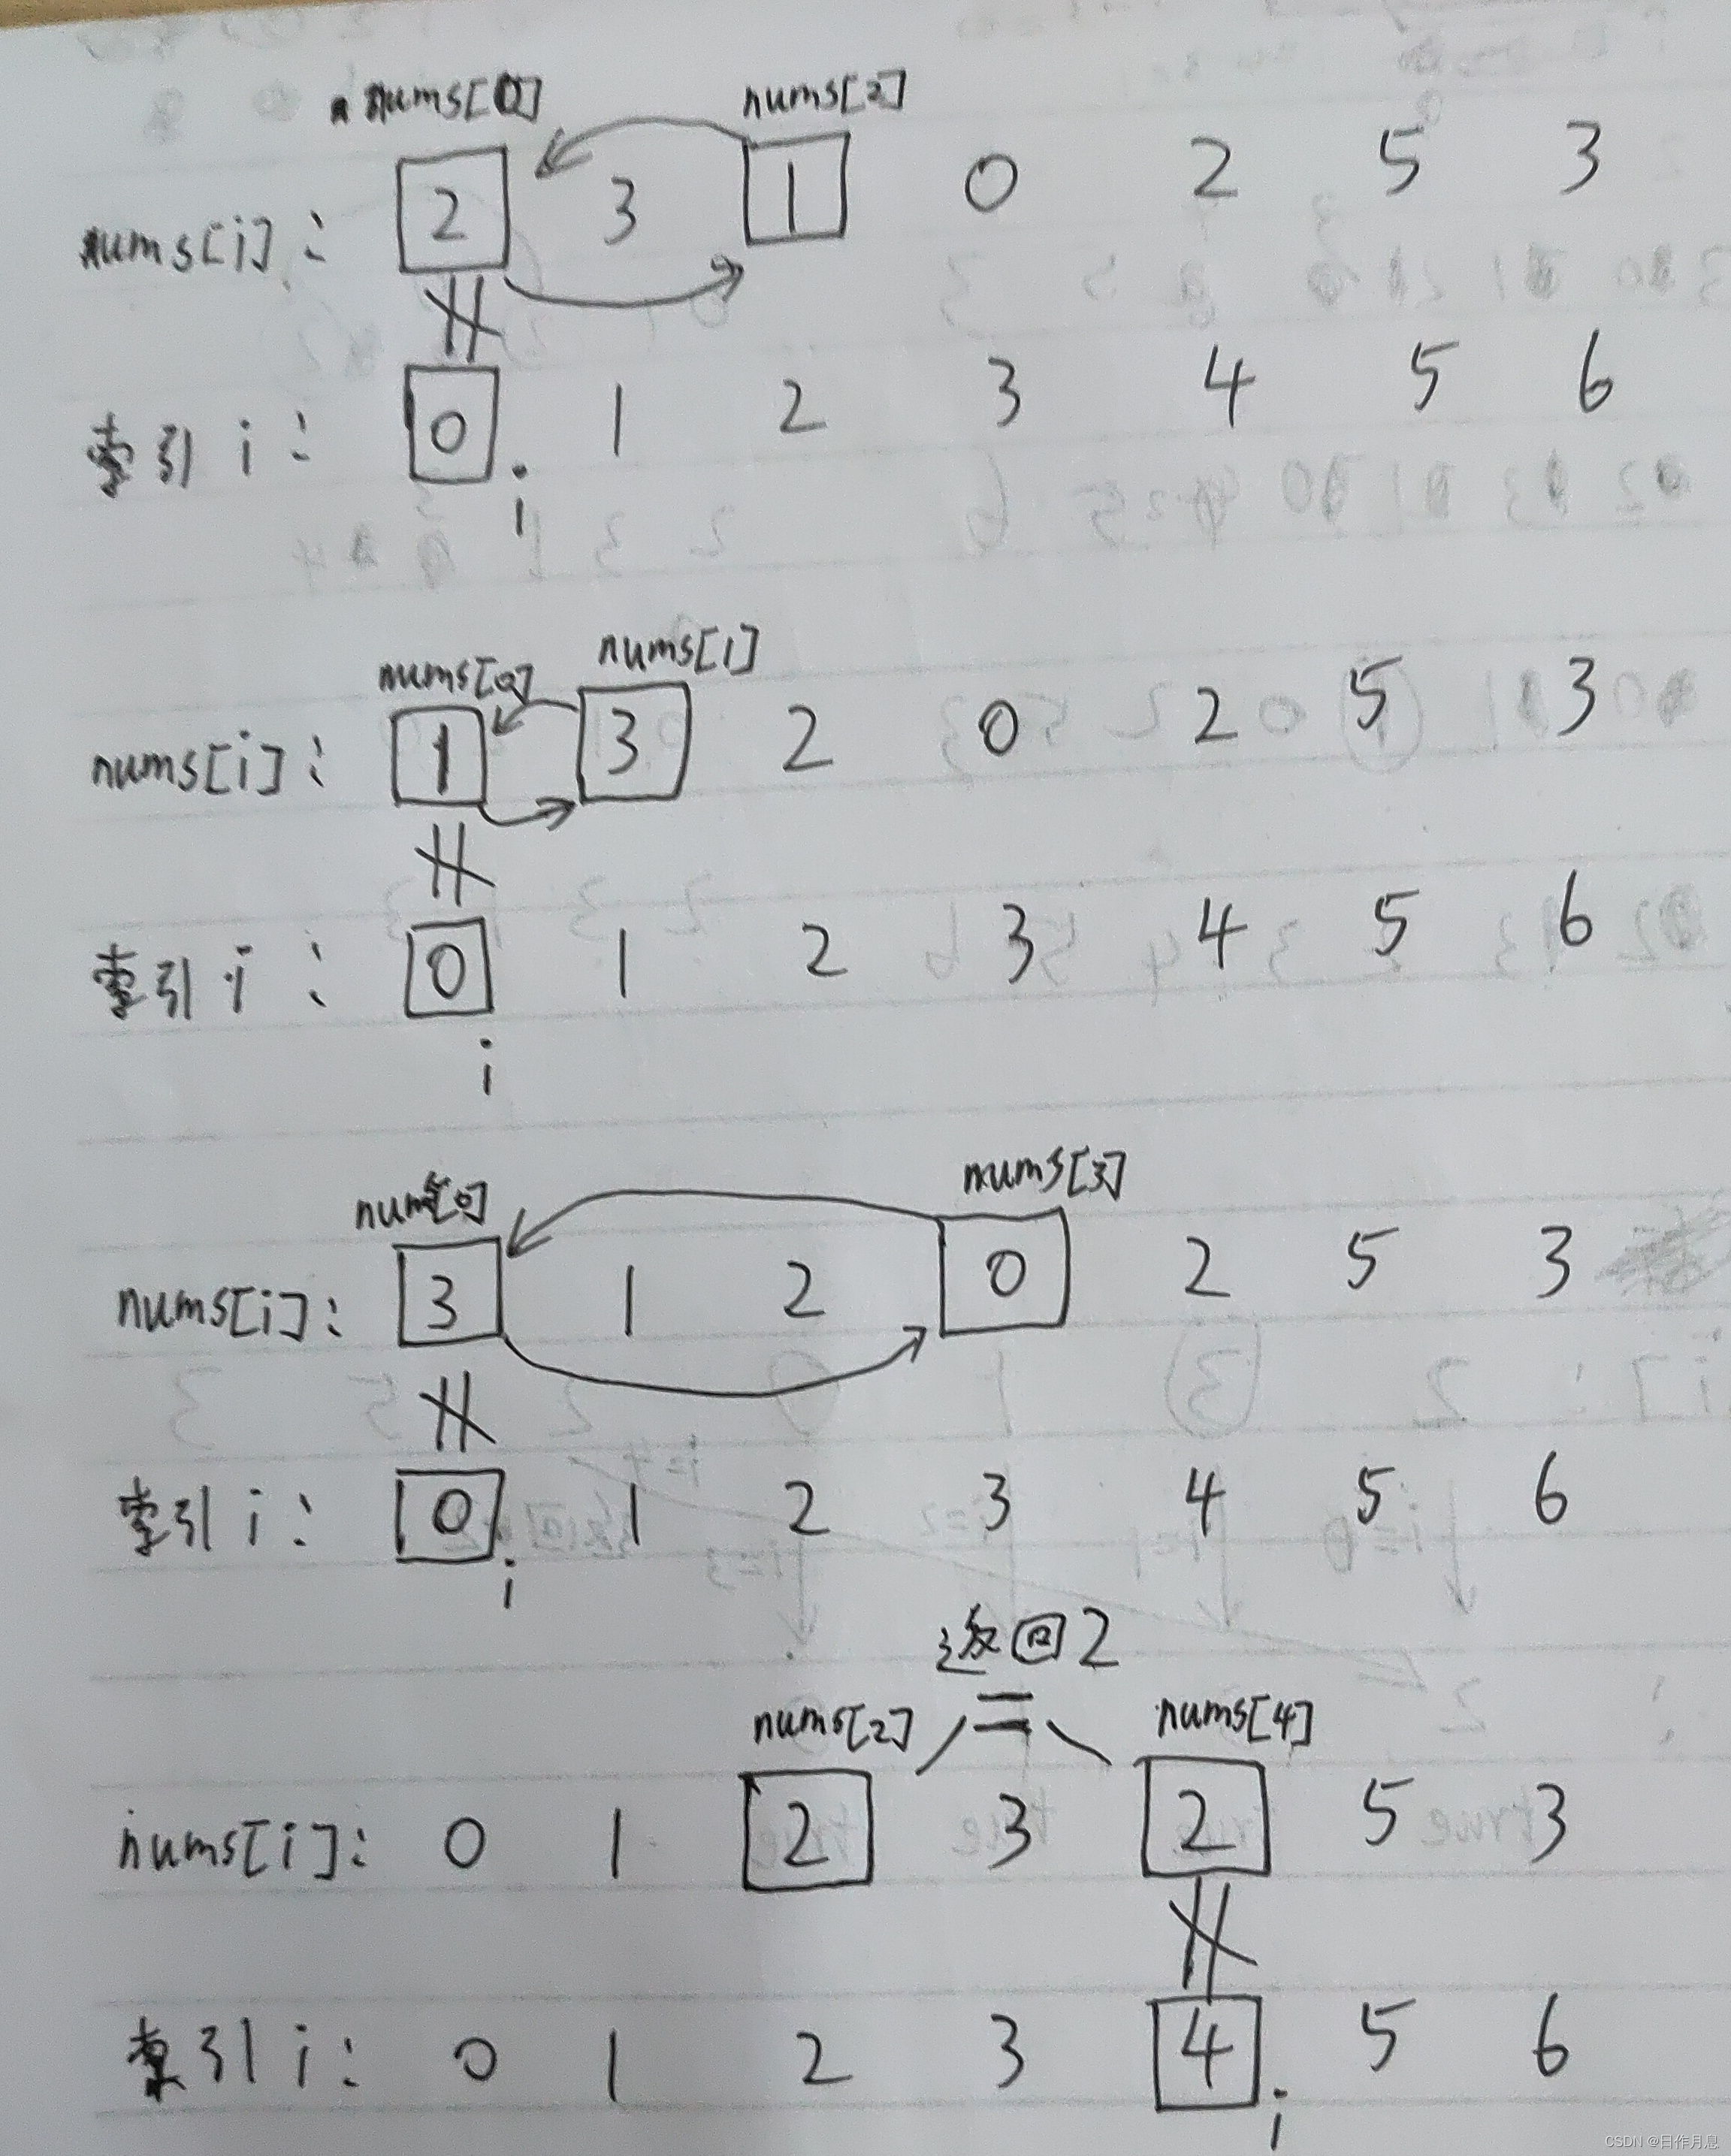 nums[0] nums[2]
nums[i]: 2 3 1 0 2 5 3
索引 i: 0 1 2 3 4 5 6
i
nums[0] nums[1]
nums[i]: 1 3 2 0 2 5 3
索引 i: 0 1 2 3 4 5 6
i
nums[0] nums[3]
nums[i]: 3 1 2 0 2 5 3
索引 i: 0 1 2 3 4 5 6
i
返回2
nums[2] = nums[4]
nums[i]: 0 1 2 3 2 5 3
索引 i: 0 1 2 3 4 5 6
i
CSDN @日作月息